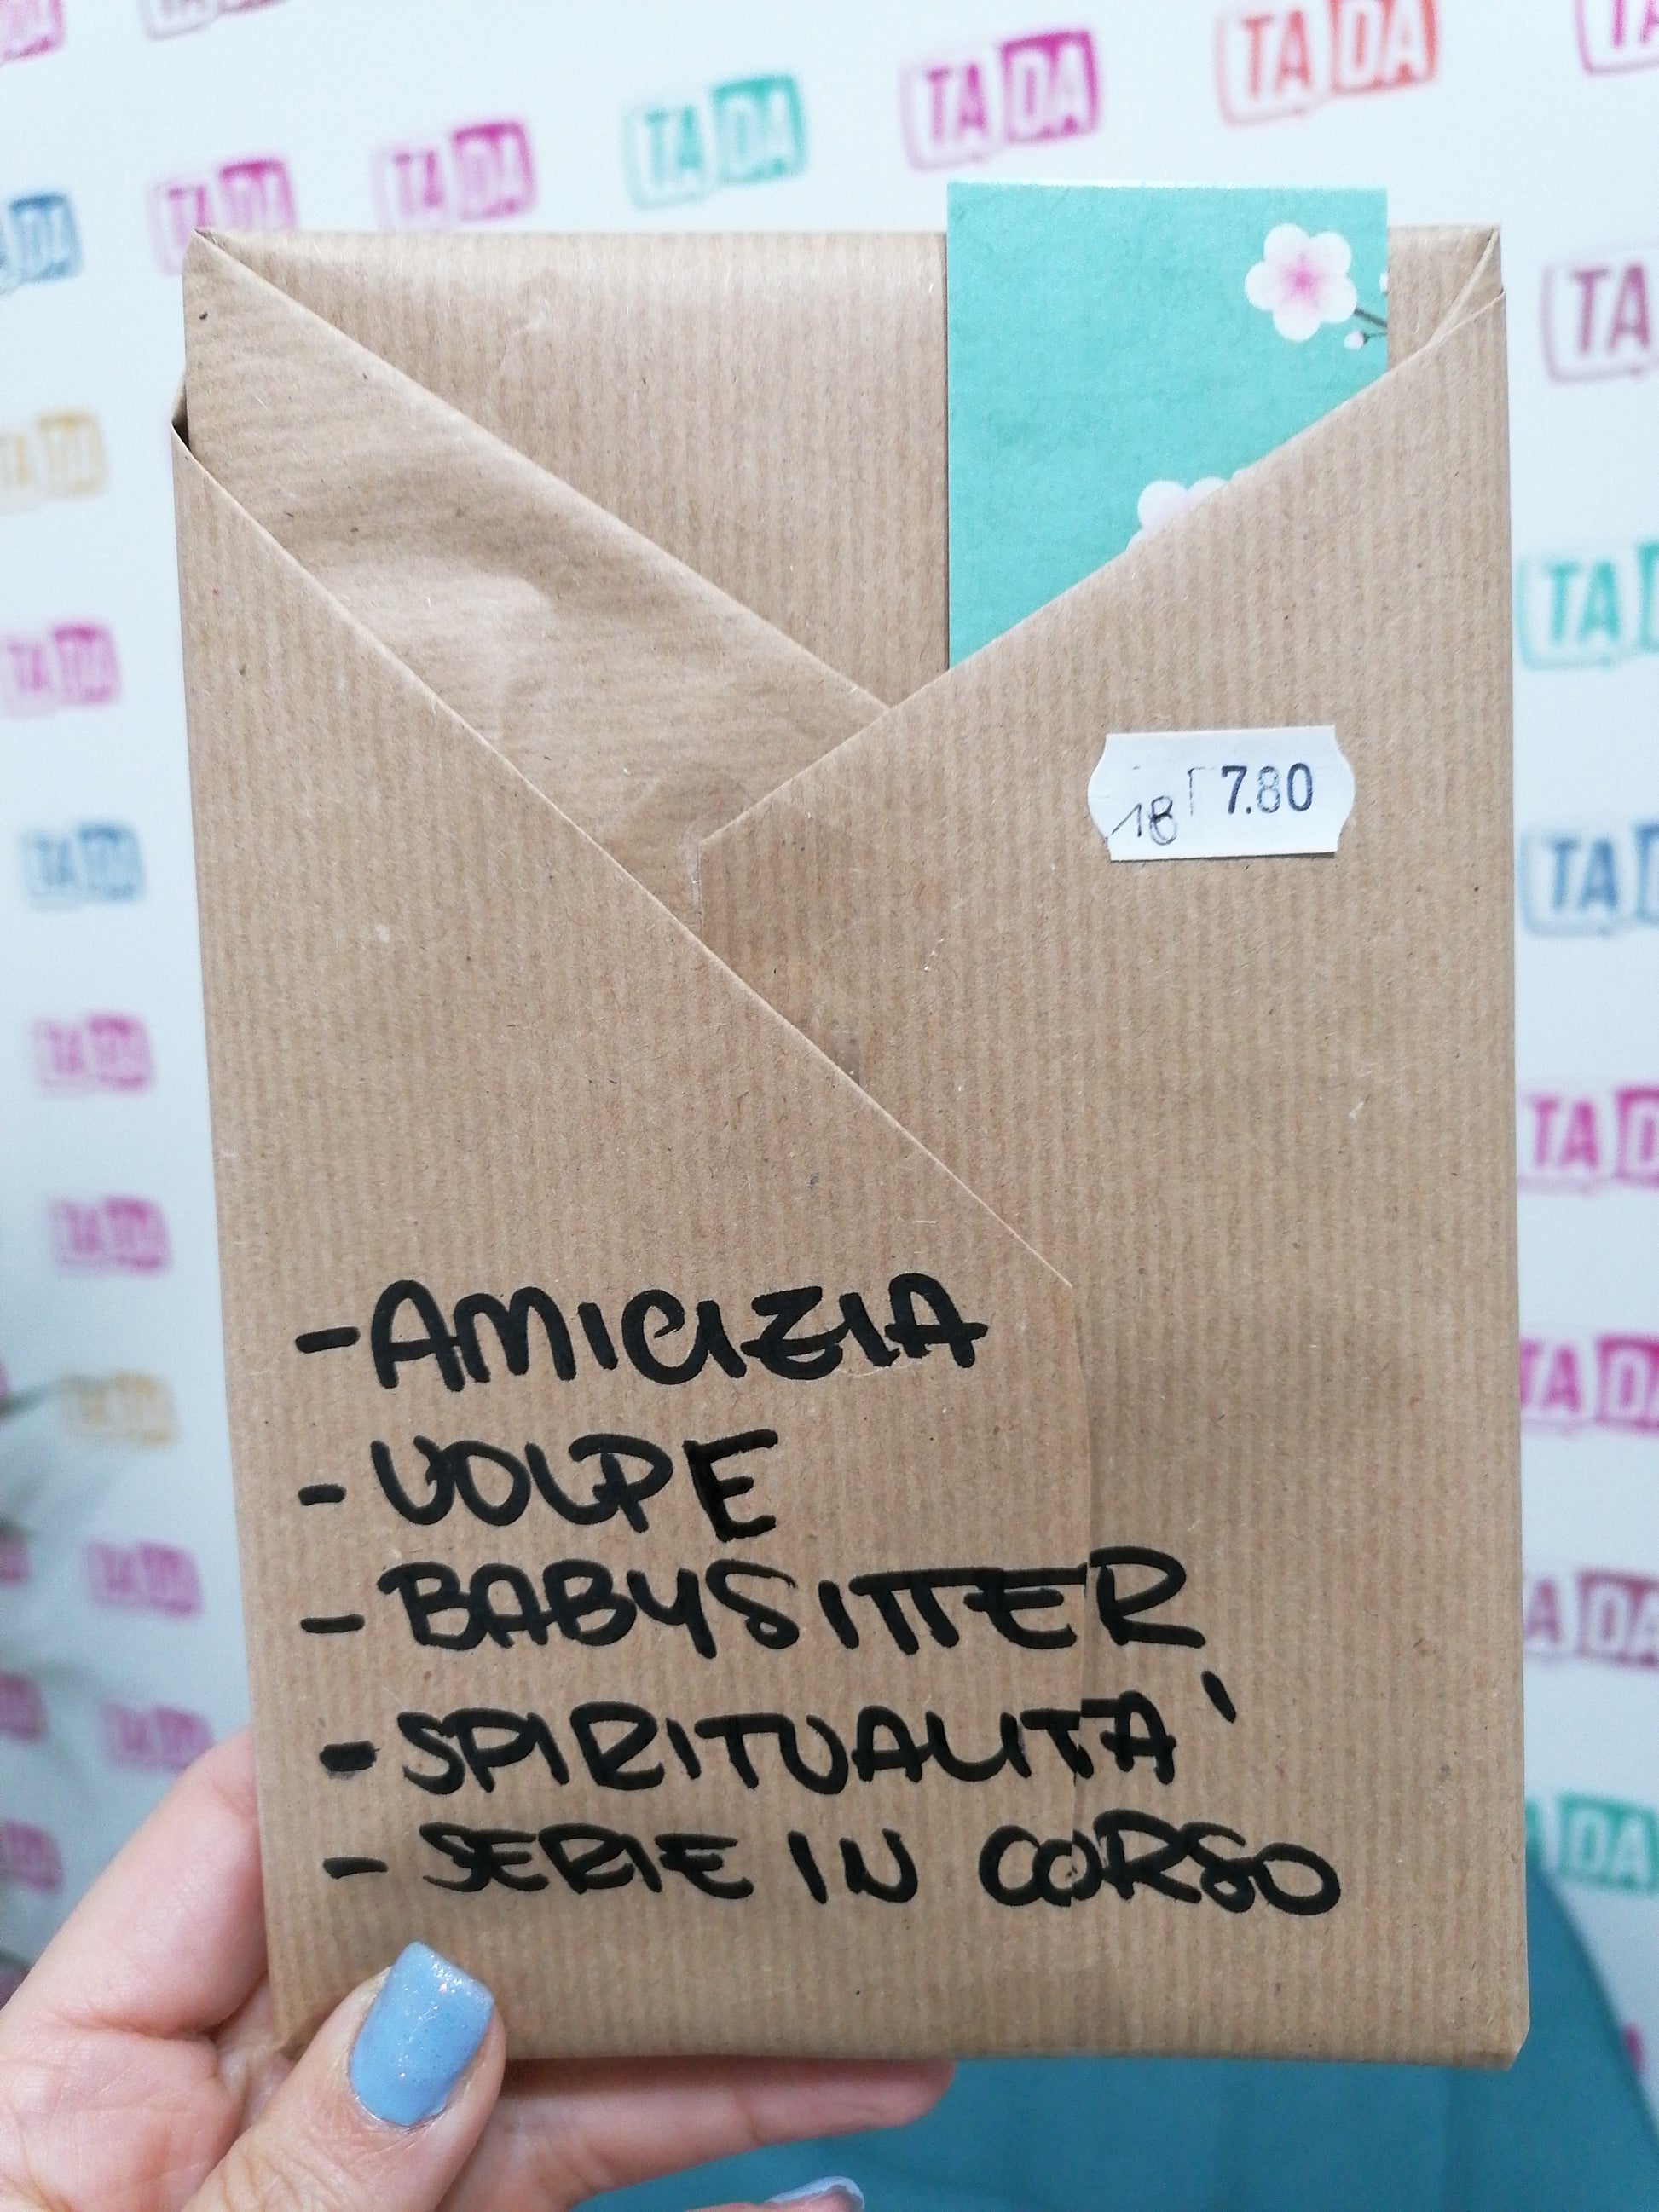 TA DA
TA DA
TA DA
TA DA
TA DA
TA DA
TA
TA DA
TA DA
TA
18 7.80
TA DA
TA
TA DA
TA DA
TA DA
TA DA
- AMICIZIA
TA DA
- VOLPE
TA DA
- BABYSITTER
DA
- SPIRITUALITA'
- SERIE IN CORSO
DA